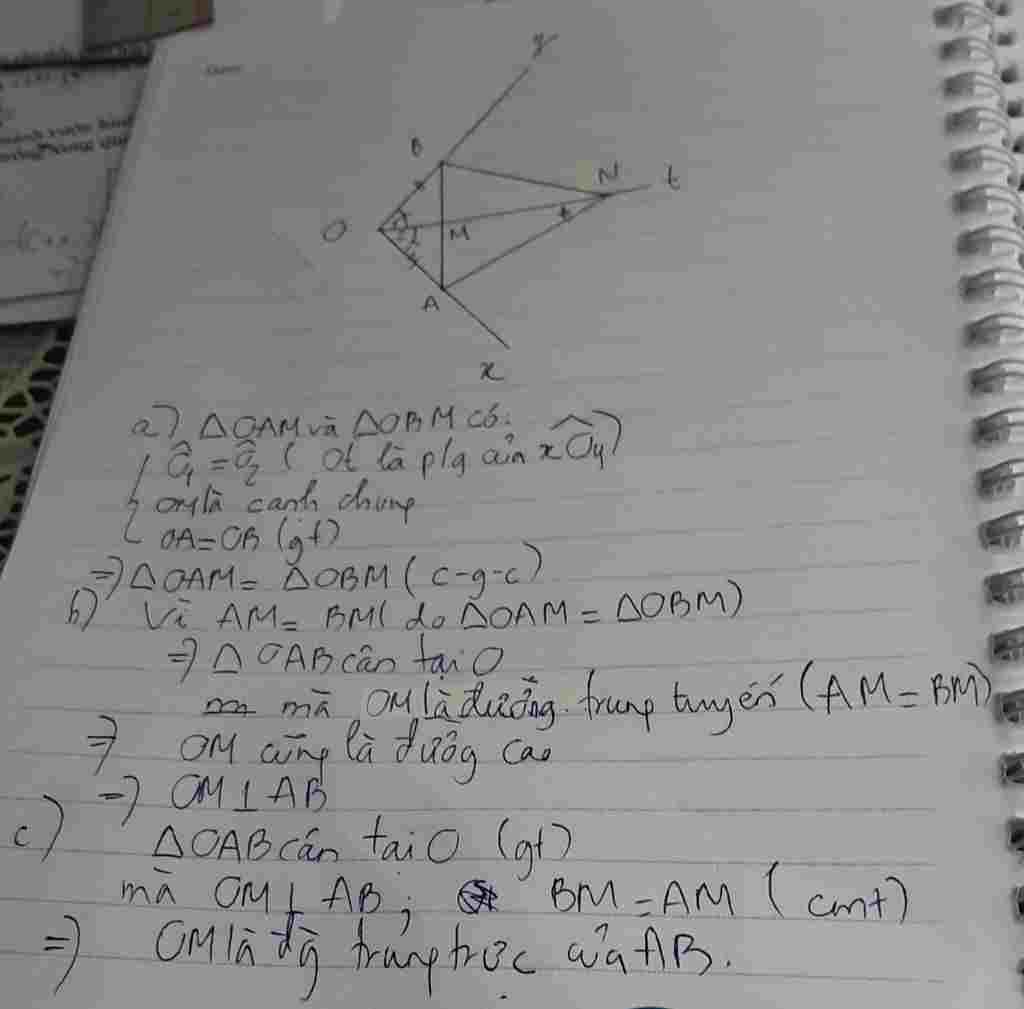 y
B
N
t
O
M
A
x
a) ΔOAM và ΔOBM có:
Ô₁ = Ô₂ ( Ot là p/g của xÔy)
OM là cạnh chung
OA=OB (gt)
=> ΔOAM = ΔOBM ( c-g-c)
b) Vì AM = BM ( do ΔOAM = ΔOBM)
=> Δ OAB cân tại O
mà OM là đường trung tuyến (AM = BM)
=> OM cũng là đường cao
=> OM ⊥ AB
c) ΔOAB cân tại O (gt)
mà OM ⊥ AB ; BM = AM ( cmt)
=> OM là đg trung trực của AB.